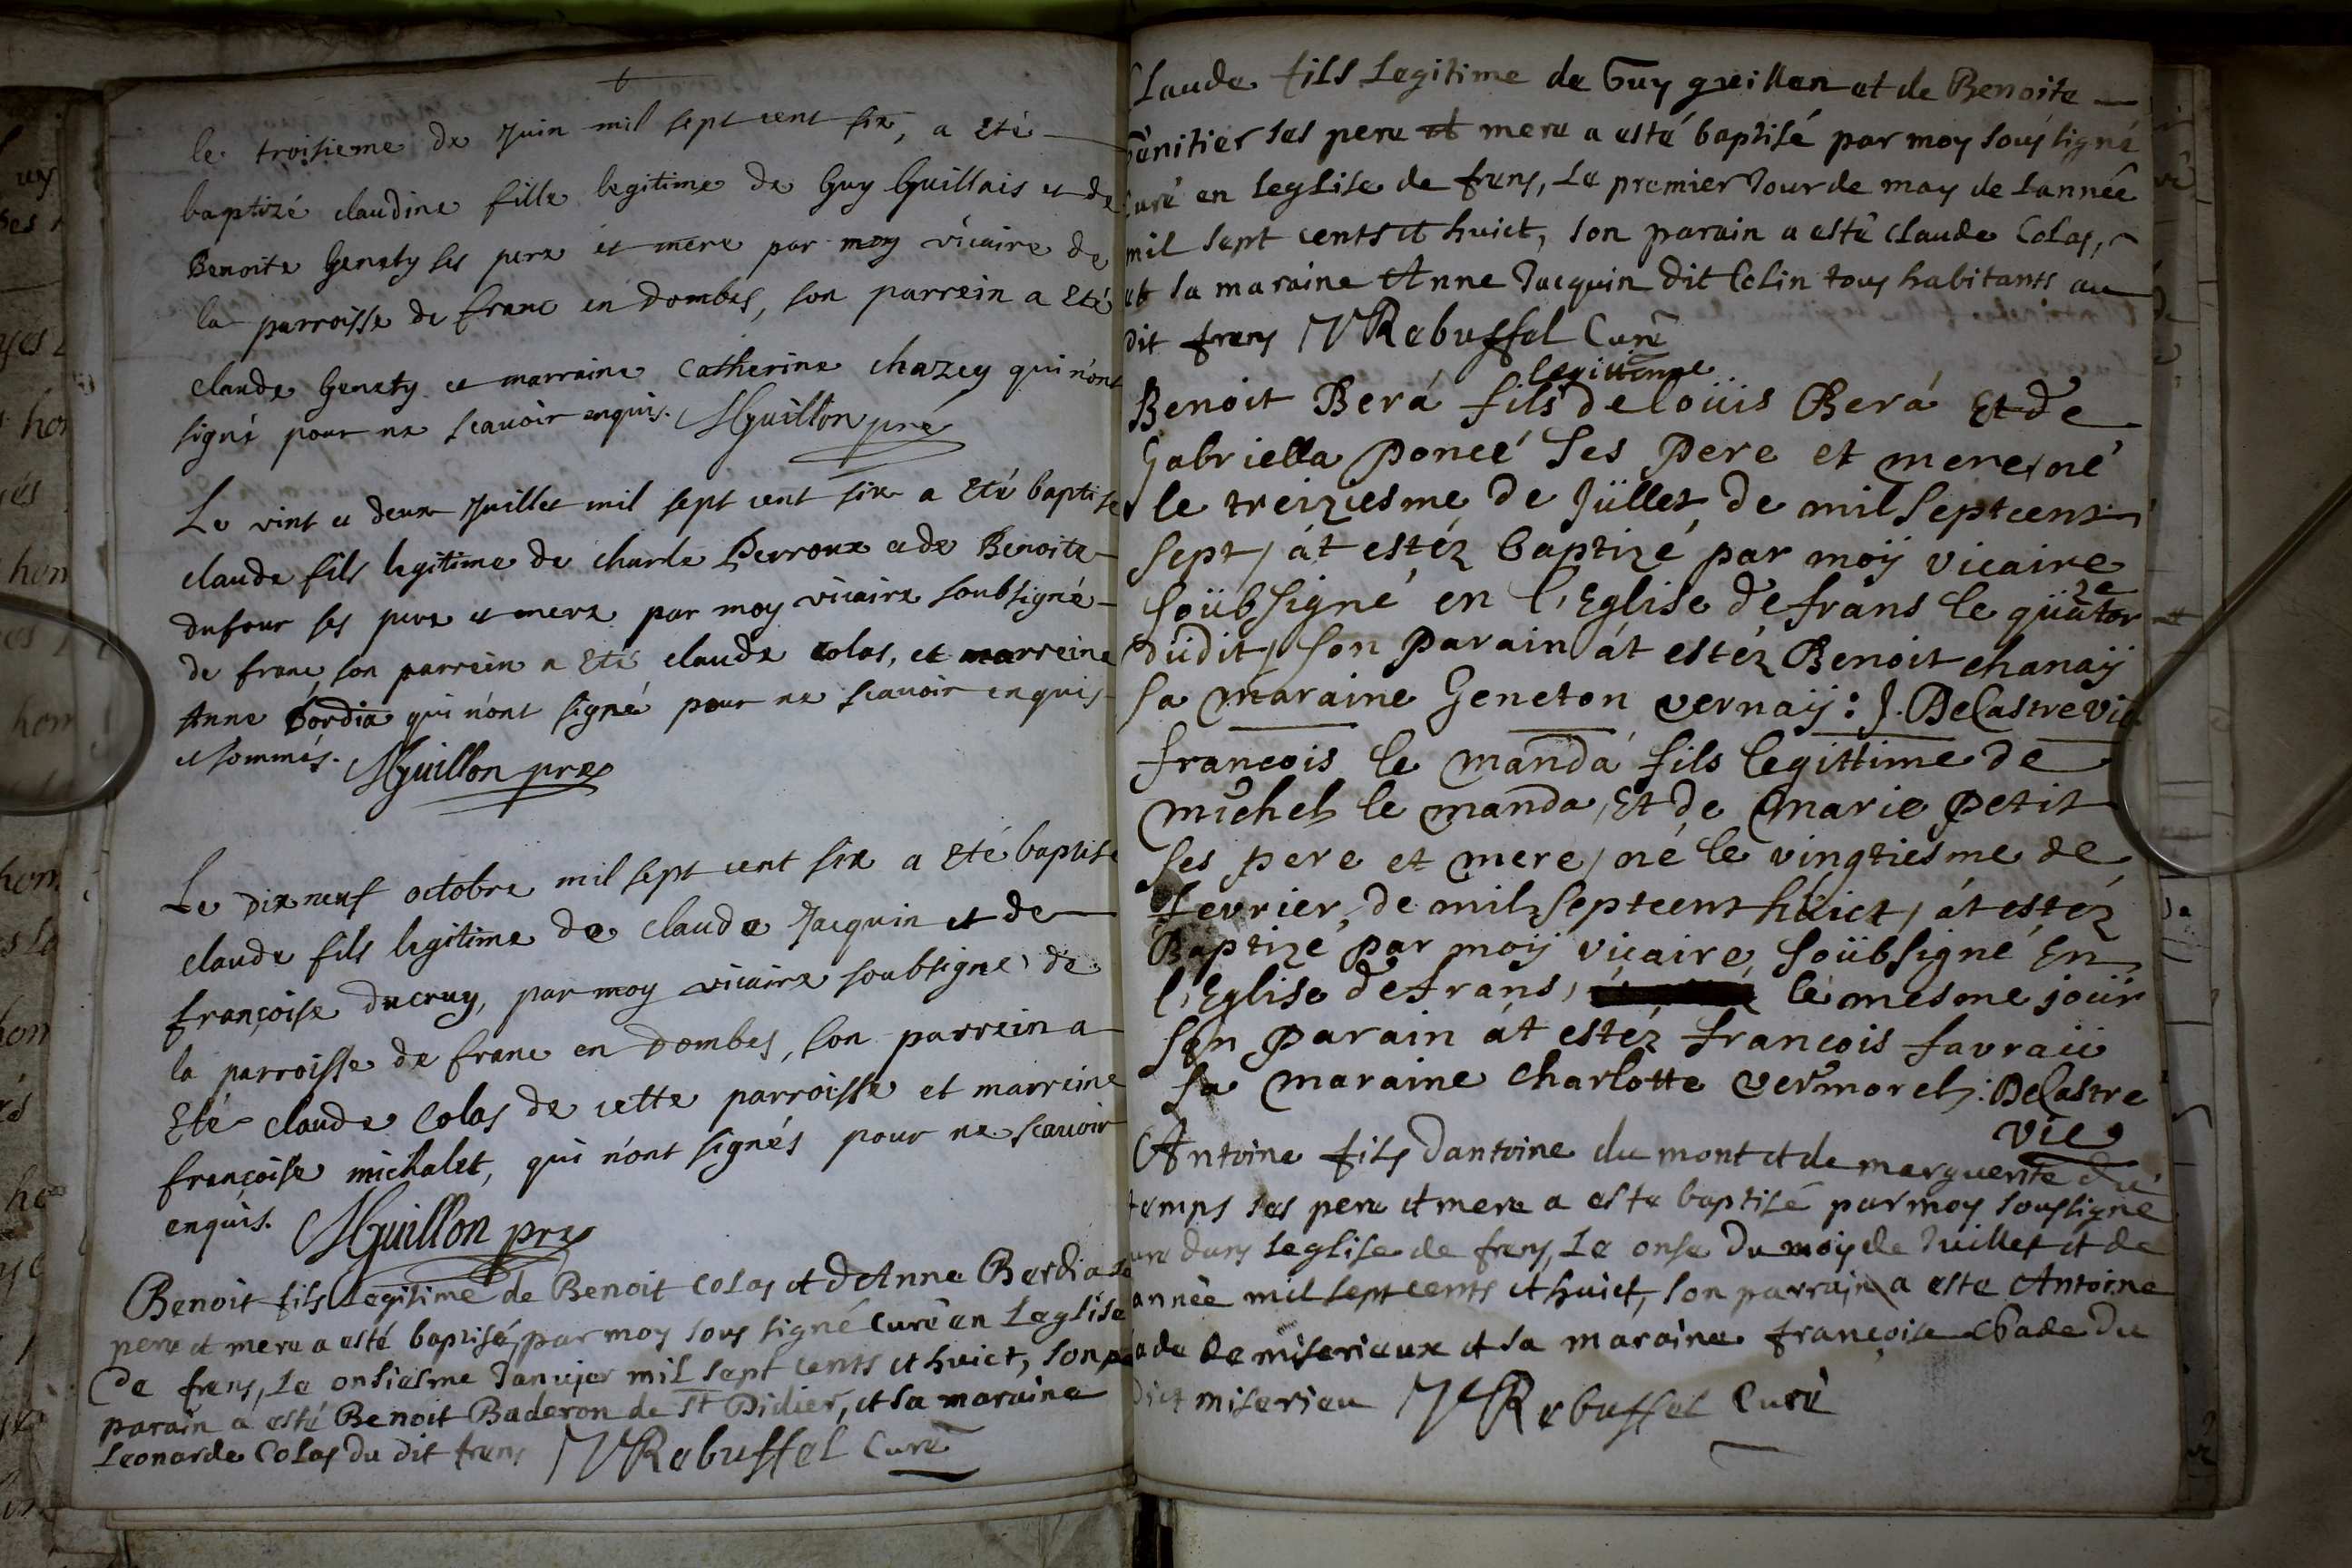 le troisieme de Juin mil sept cent six, a Eté
baptizé claudine fille legitime de Guy Guillais et de
Benoite Genety ses pere et mere par moy vicaire de
la parroisse de franc en Dombes, son parrein a Eté
claude Genety et marraine Catherine chazey qui n'ont
signé pour ne scavoir enquis. Guillon pre
Le vint et deux Juillet mil sept cent six a Eté baptisé
claude fils legitime de charle Perroux et de Benoite
dufour ses pere et mere par moy vicaire soubsigné
de franc, son parrein a Eté claude Colas, et marreine
Anne Bordia qui n'ont signé pour ne scavoir enquis
et sommés. Guillon pre
Le Dix neuf octobre mil sept cent six a Eté baptisé
claude fils legitime de Claude Jacquin et de
françoise ducruy, par moy vicaire soubsigné de
la parroisse de franc en Dombes, son parrein a
Eté claude Colas de cette parroisse et marreine
françoise michalet, qui n'ont signés pour ne scavoir
enquis. Guillon pre
Benoit fils Legitime de Benoit Colas et d'Anne Berdia
pere et mere a esté baptisé, par moy sous signé Curé en Leglise
De frens, Le onsiesme Janvier mil sept cents et huict, son
parain a esté Benoit Baderon de St Didier, et sa maraine
Leonarde Colas du dit frens Rebuffel Curé
Claude fils Legitime de Guy guillen et de Benoite
Genitier ses pere et mere a esté baptisé par moy sous signé
Curé en Leglise de frens, Le premier Jour de may de Lannée
mil sept cents et huict, son parain a esté Claude Colas,
et sa maraine Anne Jacquin dit Colin tous habitants au
dit frens Rebuffel Curé
legittimme
Benoit Berá fils de loüis Berá Et de
Gabriella Poncé Ses Pere et mere, né
le treiziesme de Jüllet de mil septcent
sept, át estéz baptizé par moÿ vicaire
soübsigné en l'Eglise de frans le qüator
ze
düdit, son Parain át estéz Benoit chanaÿ
sa maraine Geneton vernaÿ: J. DeCastre vic
francois le manda fils legittime de
michel le manda, Et de marie Petit
ses pere et mere, né le vingtiesme de
fevrier, de mil septcent hüict, át estéz
Baptizé par moÿ vicaire soübsigné En
l'Eglise de frans, le mesme joür
son Parain át estéz francois favraÿ
sa maraine charlotte vermorel: DeCastre
vic
Antoine fils Dantoine du mont et de marguerite du
temps ses pere et mere a este baptisé par moy soussigné
curé dans Leglise de frens, Le onse du mois de Juillet et de
année mil sept cents et huict, son parrain a este Antoine
de miserieux et sa maraine françoise du
dict miserieu Rebuffel Curé